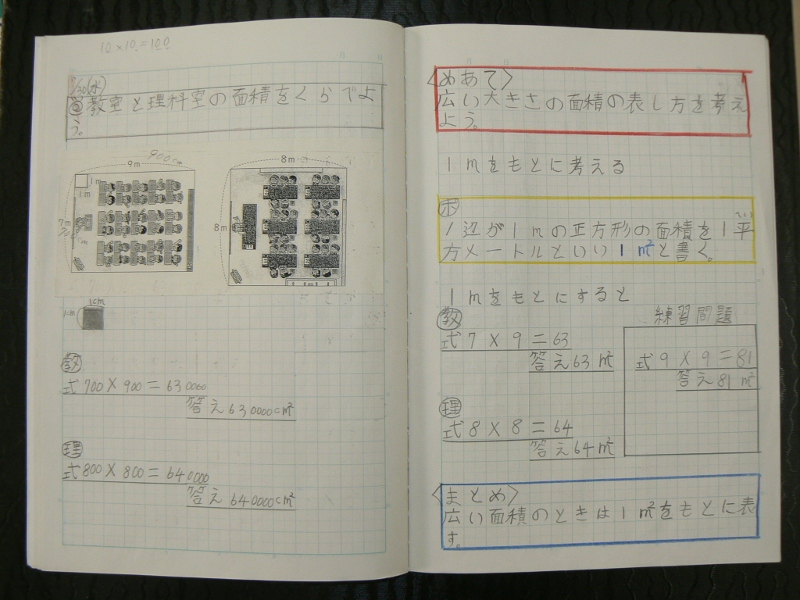 10×10=100
/30(水)
教室と理科室の面積をくらべよ
う。
9m 900cm
1m
1m
7m
8m
8m
1cm
1cm
教
式700×900=630000
答え630000cm²
理
式800×800=640000
答え640000cm²
〈めあて〉
広い大きさの面積の表し方を考え
よう。
1mをもとに考える
ポ
1辺が1mの正方形の面積を1平
方メートルといい1m²と書く。
1mをもとにすると
教
式7×9=63
答え63m²
理
式8×8=64
答え64m²
練習問題
式9×9=81
答え81m²
〈まとめ〉
広い面積のときは1m²をもとに表
す。